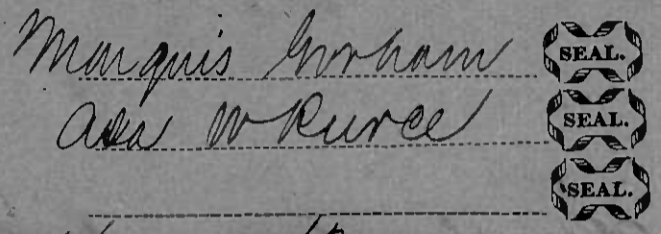 Marquis Gorham SEAL.
Asa W Pierce SEAL.
SEAL.